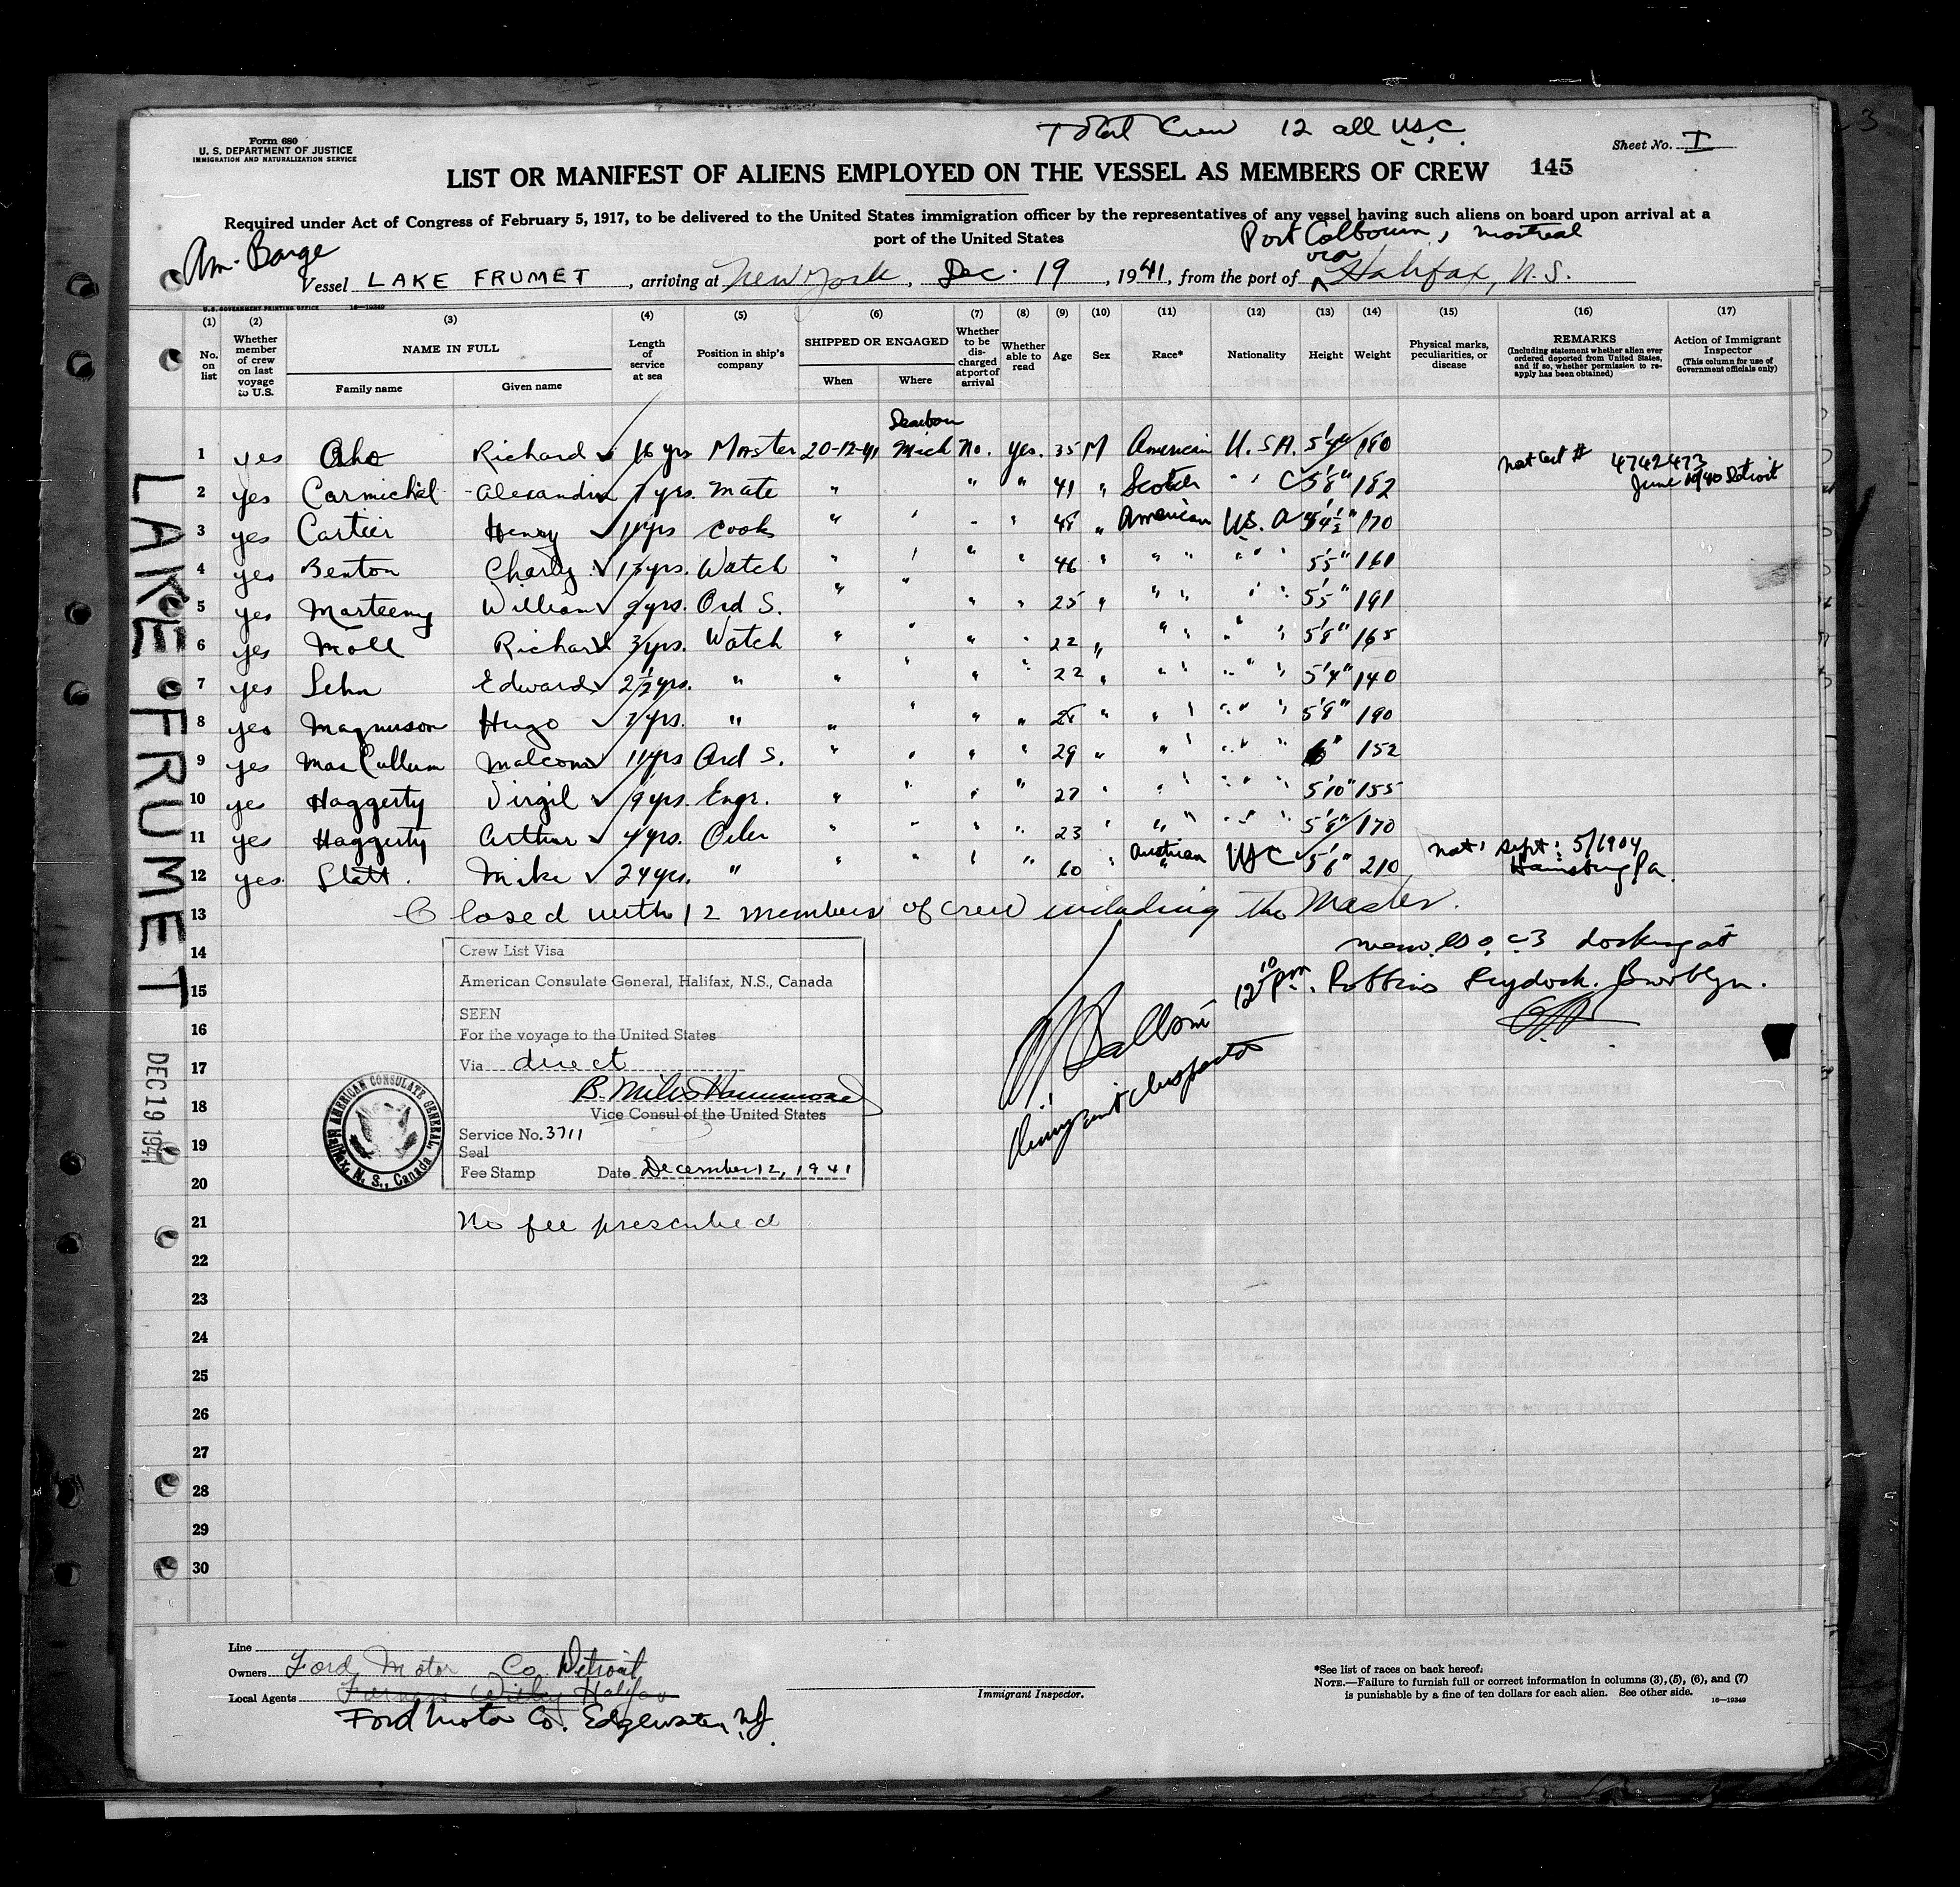 Total Crew 12 all U.S.C.
Form 680
U. S. DEPARTMENT OF JUSTICE
IMMIGRATION AND NATURALIZATION SERVICE
Sheet No. I
LIST OR MANIFEST OF ALIENS EMPLOYED ON THE VESSEL AS MEMBERS OF CREW 145
Required under Act of Congress of February 5, 1917, to be delivered to the United States immigration officer by the representatives of any vessel having such aliens on board upon arrival at a
port of the United States
Port Colbourn, Montreal
Am. Barge
via
Vessel LAKE FRUMET, arriving at New York, Dec. 19, 1941, from the port of Halifax, N.S.
U.S. GOVERNMENT PRINTING OFFICE 16—19349
(1) (2) (3) (4) (5) (6) (7) (8) (9) (10) (11) (12) (13) (14) (15) (16) (17)
No. on list
Whether member of crew on last voyage to U.S.
NAME IN FULL
Family name Given name
Length of service at sea
Position in ship's company
SHIPPED OR ENGAGED
When Where
Whether to be discharged at port of arrival
Whether able to read
Age
Sex
Race*
Nationality
Height
Weight
Physical marks, peculiarities, or disease
REMARKS
(Including statement whether alien ever ordered deported from United States, and if so, whether permission to reapply has been obtained)
Action of Immigrant Inspector
(This column for use of Government officials only)
1 yes Aho Richard 16 yrs Master 20-12-41 Mich No. yes. 35 M American U.S.A. 5'4" 180
2 yes Carmichel Alexandria 7 yrs. Mate " " " 41 " Scotch " " C 5'8" 182 Nat Cert # 4742473 June 1940 Detroit
3 yes Cartier Henry 11 yrs Cook " ' - ' 48 " American U.S.A 4½" 170
4 yes Benton Charly 15 yrs. Watch " ' " " 46 " " " " " " 5'5" 161
5 yes Marteeny William 2 yrs. Ord S. " " " " 25 " " " " " 5'5" 191
6 yes Moll Richard 3 yrs. Watch " " " " 22 " " " " " 5'8" 165
7 yes Lehn Edward 2½ yrs. " " " " " 22 " " " " " 5'4" 140
8 yes Magnuson Hugo 7 yrs. " " " " " " " " " " 5'8" 190
9 yes MacCullum Malcom 11 yrs Ord S. " " " " 29 " " " " " 6" 152
10 ye Haggerty Virgil 9 yrs. Engr. " " " " 27 " " " " " 5'10" 155
11 yes Haggerty Arthur 4 yrs. Oiler " " " " 23 " " " " " 5'8" 170
12 yes. Slatt. Mike 24 yrs. " " " " " 60 " Austrian USC 5'6" 210 Nat' Sept: 5/1904 Harrisburg Pa.
13 Closed with 12 members of crew including the Master.
14
docking at
15
12 10 PM. Robbins Drydock. Brooklyn.
16
17
18
19
20
21
22
23
24
25
26
27
28
29
30
Immigrant Inspector
Crew List Visa
American Consulate General, Halifax, N.S., Canada
SEEN
For the voyage to the United States
Via direct
B. Miles Hammond
Vice Consul of the United States
Service No. 3711
Seal
Fee Stamp Date December 12, 1941
AMERICAN CONSULATE GENERAL,
Halifax, N. S., Canada
No fee prescribed
LAKE FRUMET
DEC 19 1941
Line
Owners Ford Motor Co Detroit
Local Agents Furness Withy Halifax
Ford Motor Co. Edgewater, N.J.
Immigrant Inspector.
*See list of races on back hereof.
NOTE.—Failure to furnish full or correct information in columns (3), (5), (6), and (7)
is punishable by a fine of ten dollars for each alien. See other side.
16—19349